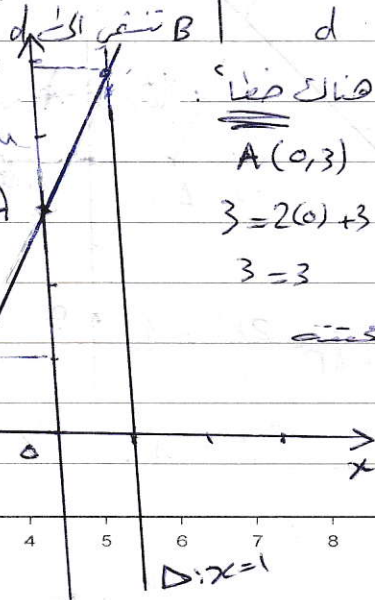 d تنتمي الى B
d
هناك خطأ :
A (0,3)
A
3 = 2(0) + 3
3 = 3
0
x
4 5 6 7 8
Δ: x = 1